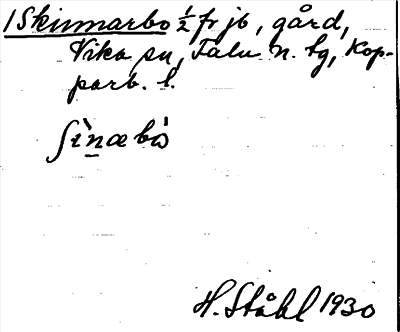 1 Skinnarbo ½ fr jb, gård,
Vika sn, Falu N. tg, Kop-
parb. l.
ʃìnæbò
H. Ståhl 1930